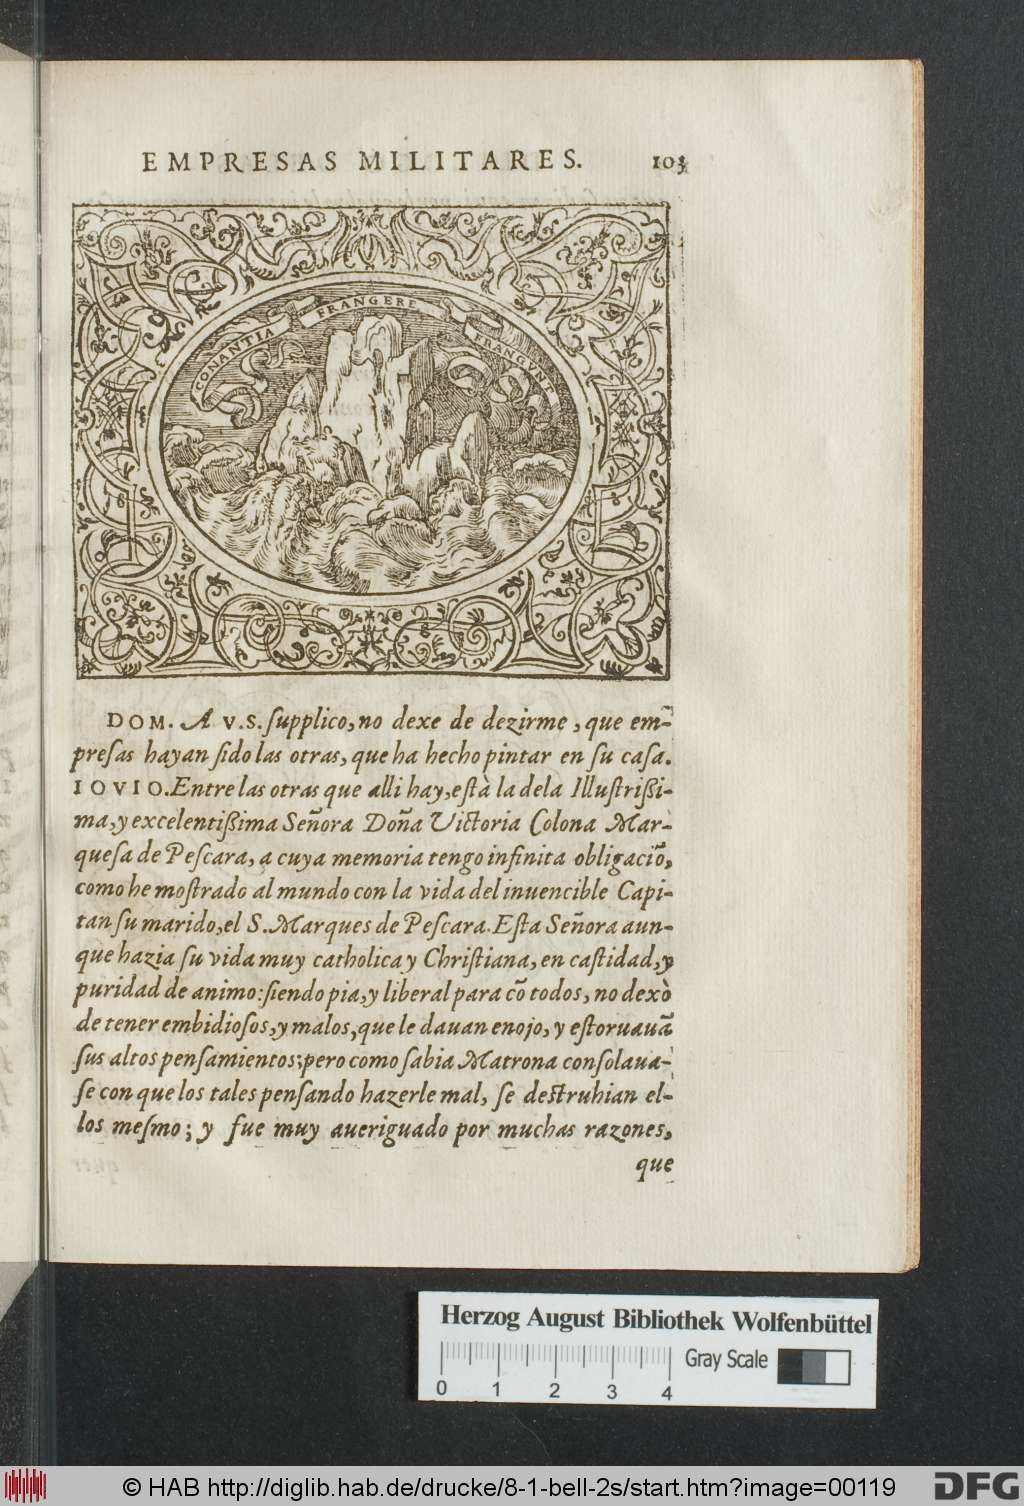 EMPRESAS MILITARES. 103
CONANTIA FRANGERE FRANGVNT
DOM. A V.S. ſupplico, no dexe de dezirme, que em-
preſas hayan ſido las otras, que ha hecho pintar en ſu caſa.
IOVIO. Entre las otras que alli hay, eſtà la dela Illuſtrißi-
ma, y excelentißima Señora Doña Victoria Colona Mar-
queſa de Peſcara, a cuya memoria tengo infinita obligaciõ,
como he moſtrado al mundo con la vida del inuencible Capi-
tan ſu marido, el S. Marques de Peſcara. Eſta Señora aun-
que hazia ſu vida muy catholica y Chriſtiana, en caſtidad, y
puridad de animo: ſiendo pia, y liberal para cõ todos, no dexò
de tener embidioſos, y malos, que le dauan enojo, y eſtoruauã
ſus altos penſamientos; pero como ſabia Matrona conſolaua-
ſe con que los tales penſando hazerle mal, ſe deſtruhian el-
los meſmo; y fue muy aueriguado por muchas razones,
que
Herzog August Bibliothek Wolfenbüttel
Gray Scale
0 1 2 3 4
© HAB http://diglib.hab.de/drucke/8-1-bell-2s/start.htm?image=00119
DFG